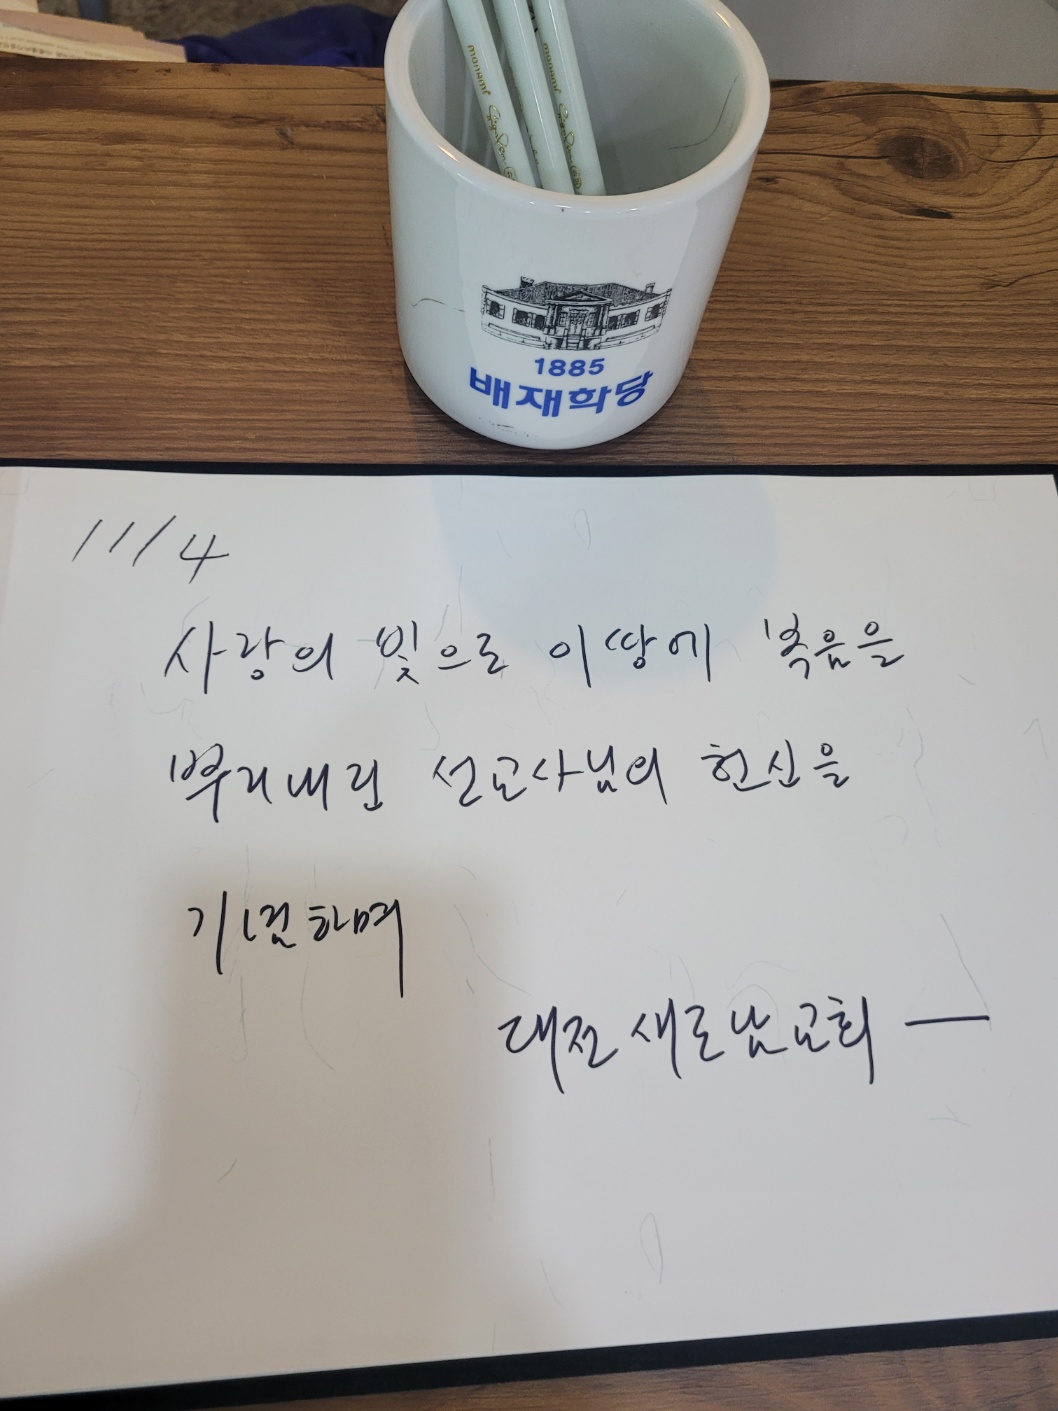 monami
monami
1885
배재학당
11/4
사랑의 빛으로 이땅에 복음을
뿌리내린 선교사님의 헌신을
기념하며
대전 새로남교회 —